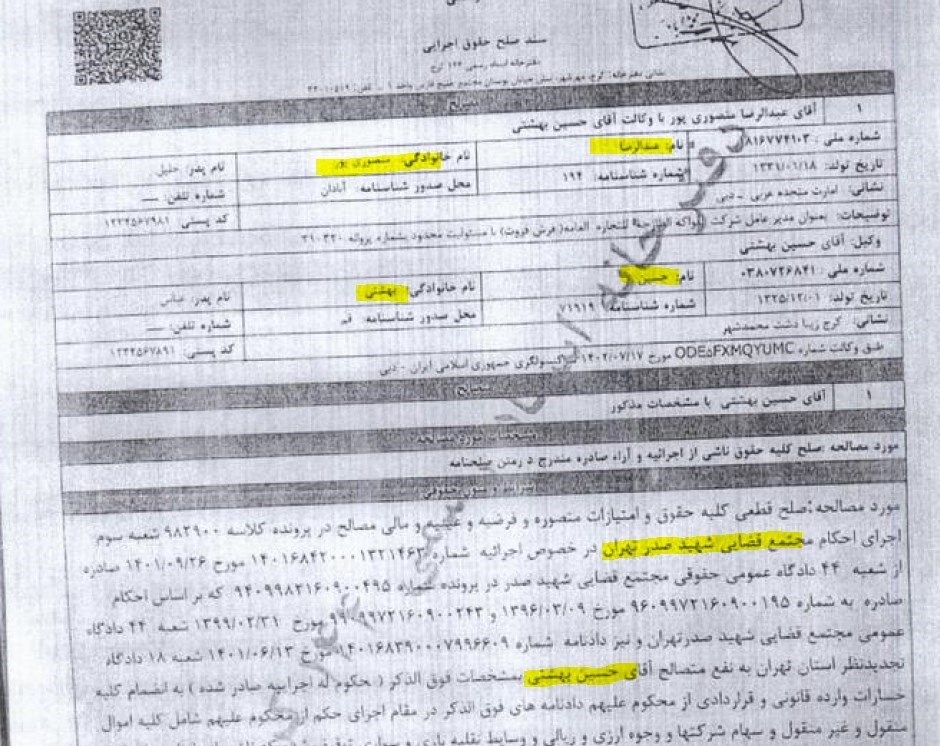 سند صلح حقوق اجرایی
دفترخانه اسناد رسمی ۱۴۴ کرج
مصالح
۱ آقای عبدالرضا منصوری پور با وکالت آقای حسین بهشتی
شماره ملی : ۸۱۶۷۷۴۱۰۳ نام: عبدالرضا نام خانوادگی: منصوری پور نام پدر: خلیل
تاریخ تولد: ۱۳۳۱/۰۱/۱۸ شماره شناسنامه: ۱۹۴ محل صدور شناسنامه: آبادان شماره تلفن: ---
نشانی: امارت متحده عربی - دبی کد پستی: ۱۲۳۴۵۶۷۹۸۱
توضیحات: بعنوان مدیر عامل شرکت الفواکه الطازجة للتجاره العامه(فرش فروت) با مسئولیت محدود بشماره پروانه ۳۱۰۳۲۰
وکیل: آقای حسین بهشتی
شماره ملی : ۰۳۸۰۷۲۶۸۴۱ نام: حسین نام خانوادگی: بهشتی نام پدر: عباس
تاریخ تولد: ۱۳۲۵/۱۲/۰۱ شماره شناسنامه: ۷۱۹۱۹ محل صدور شناسنامه: قم شماره تلفن: ---
نشانی: کرج زیبا دشت محمدشهر کد پستی: ۱۲۳۴۵۶۷۸۹۱
طبق وکالت شماره ODE۵FXMQYUMC مورخ ۱۴۰۲/۰۷/۱۷ کنسولگری جمهوری اسلامی ایران - دبی
متصالح
۱ آقای حسین بهشتی با مشخصات مذکور
مشخصات مورد مصالحه
مورد مصالحه :صلح کلیه حقوق ناشی از اجرائیه و آراء صادره مندرج د رمتن صلحنامه
شرایط و متون حقوقی
مورد مصالحه:صلح قطعی کلیه حقوق و امتیازات متصوره و فرضیه و عینیه و مالی مصالح در پرونده کلاسه ۹۸۲۹۰۰ شعبه سوم
اجرای احکام مجتمع قضایی شهید صدر تهران در خصوص اجرائیه شماره ۱۴۰۱۶۸۴۲۰۰۰۱۳۲۱۴۶۳ مورخ ۱۴۰۱/۰۹/۲۶ صادره
از شعبه ۴۴ دادگاه عمومی حقوقی مجتمع قضایی شهید صدر در پرونده شماره ۹۴۰۹۹۸۲۱۶۰۹۰۰۴۹۵ که بر اساس احکام
صادره به شماره ۹۶۰۹۹۷۲۱۶۰۹۰۰۱۹۵ مورخ ۱۳۹۶/۰۳/۰۹ و ۹۹۰۹۹۷۲۱۶۰۹۰۰۲۴۳ مورخ ۱۳۹۹/۰۲/۳۱ شعبه ۴۴ دادگاه
عمومی مجتمع قضایی شهید صدرتهران و نیز دادنامه شماره ۱۴۰۱۶۸۳۹۰۰۰۷۹۹۶۶۰۹ مورخ ۱۴۰۱/۰۶/۱۳ شعبه ۱۸ دادگاه
تجدیدنظر استان تهران به نفع متصالح آقای حسین بهشتی بمشخصات فوق الذکر ( محکوم له اجراییه صادر شده ) به انضمام کلیه
خسارات وارده قانونی و قراردادی از محکوم علیهم دادنامه های فوق الذکر در مقام اجرای حکم از محکوم علیهم شامل کلیه اموال
منقول و غیر منقول و سهام شرکتها و وجوه ارزی و ریالی و وسایط نقلیه